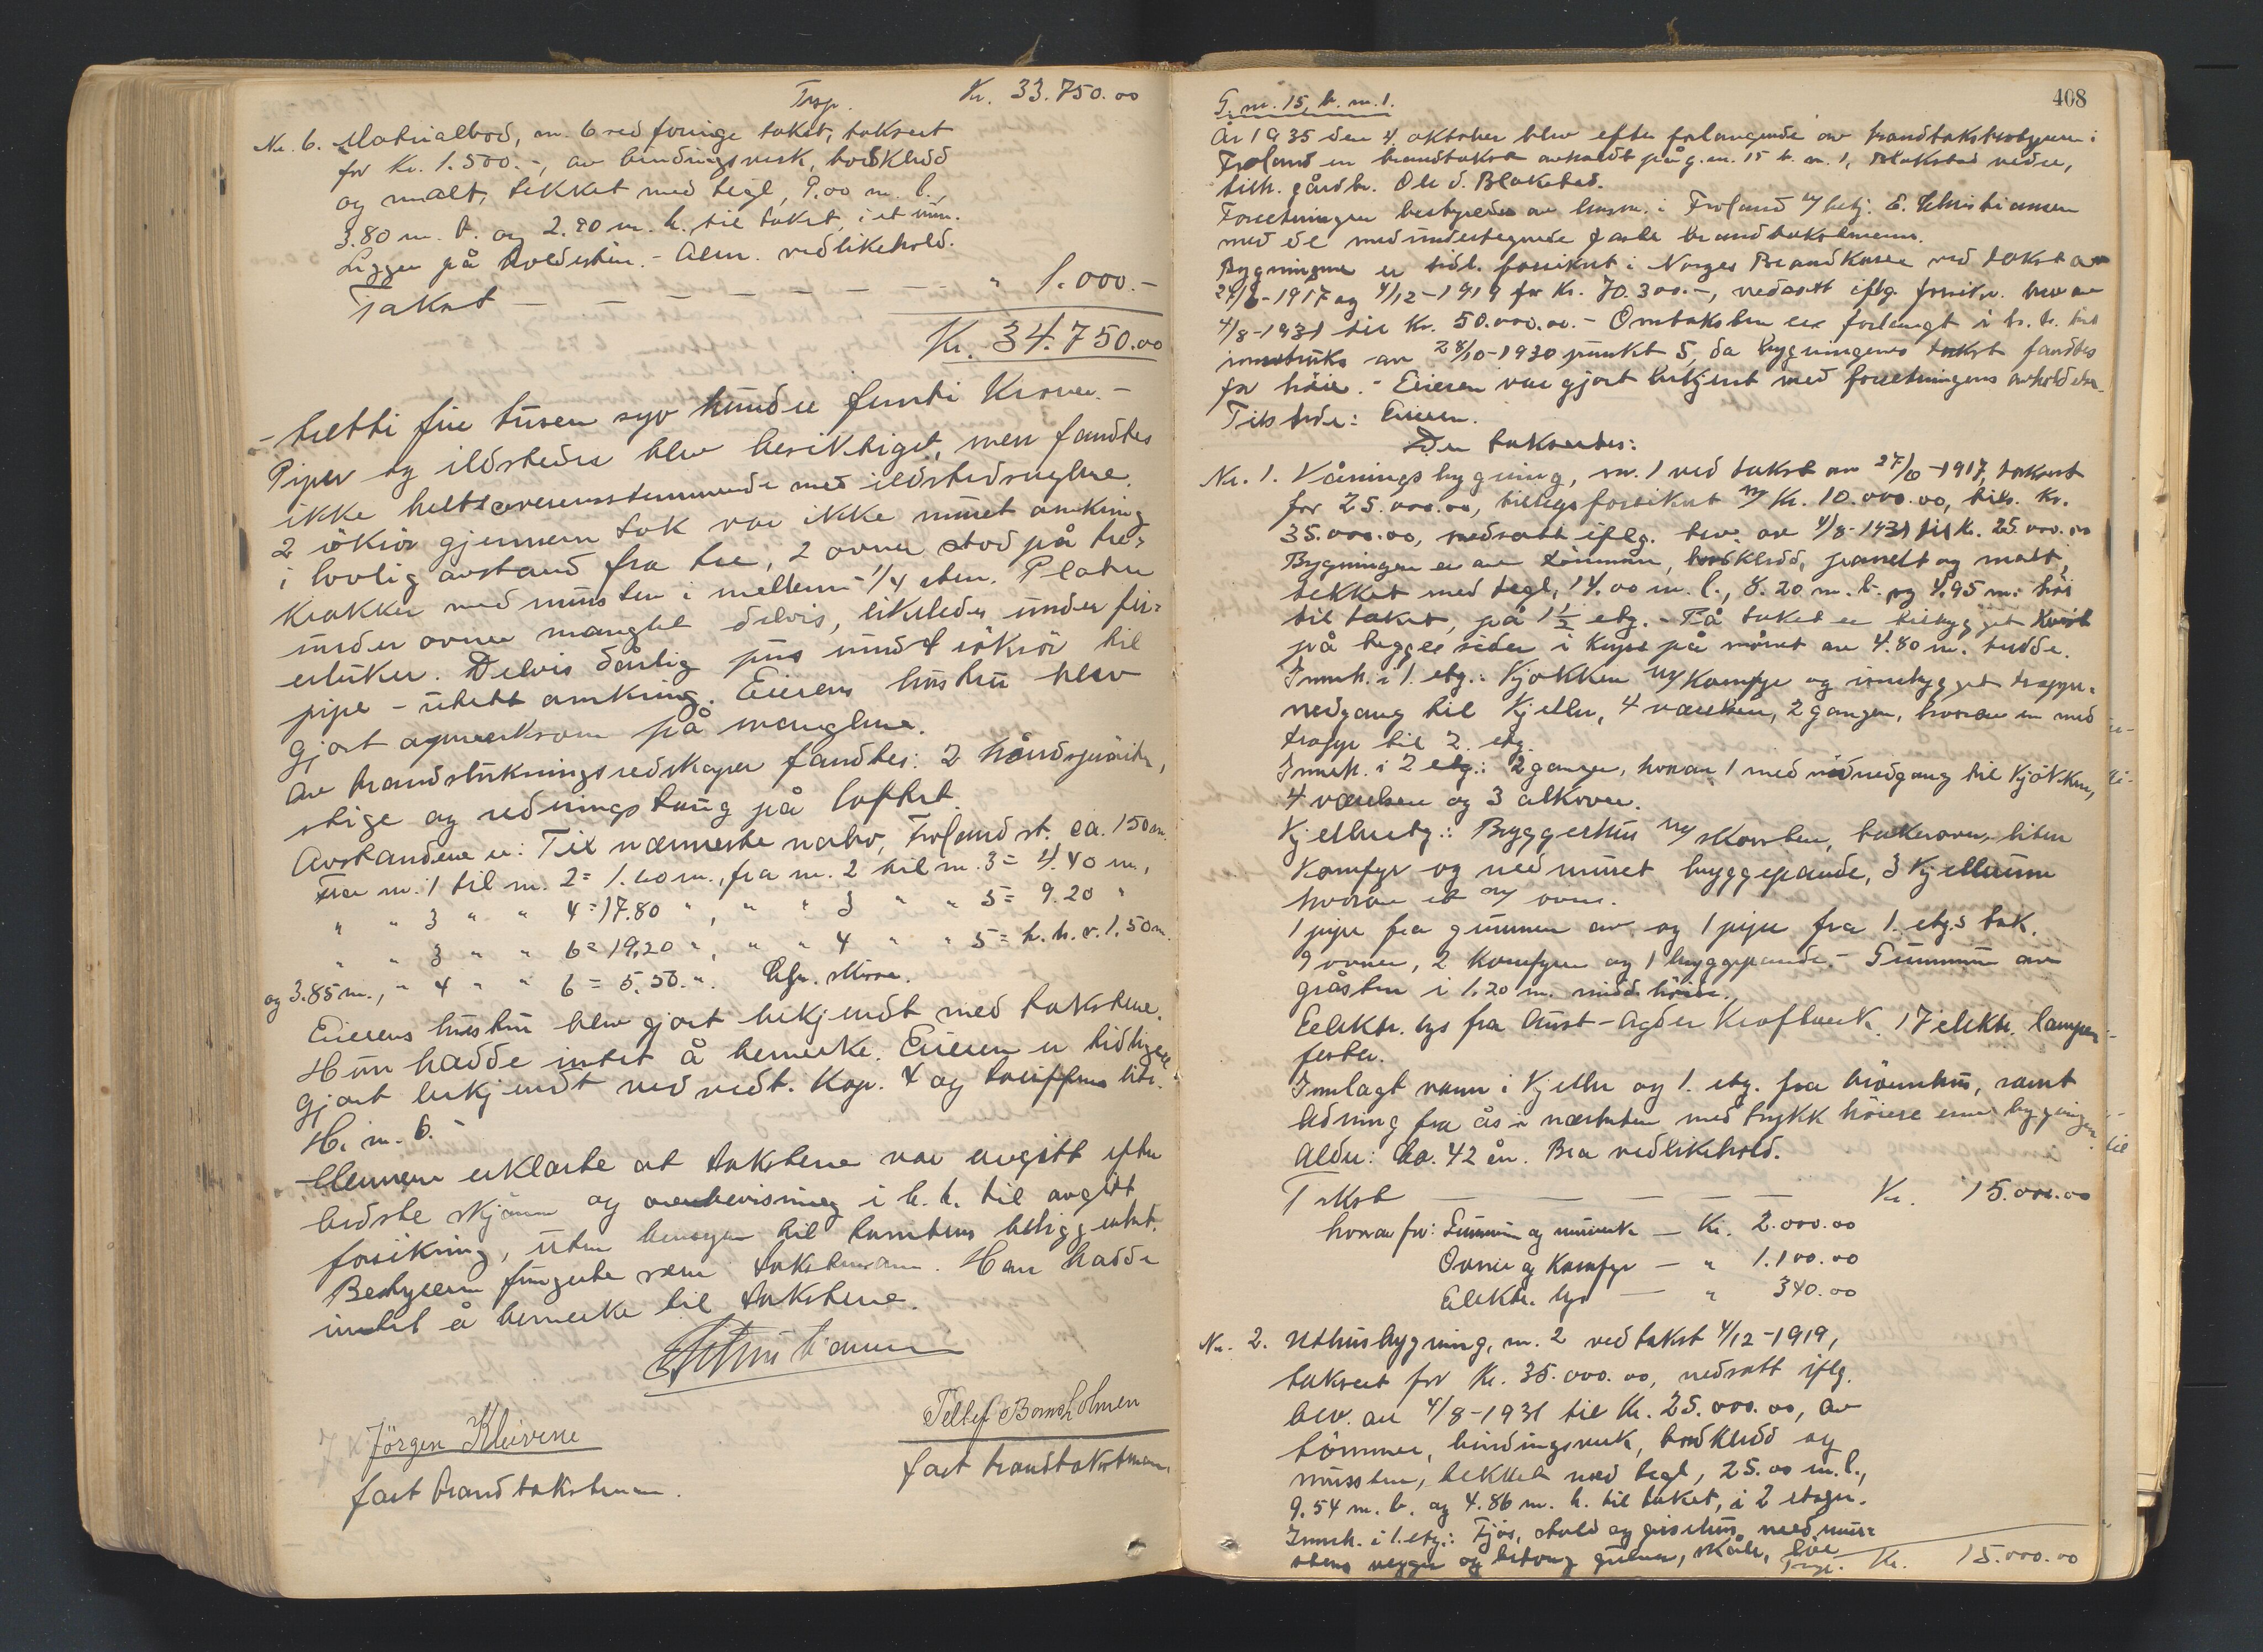 Trsp. Kr. 33.750.00
Nr. 6. Materialbod, nr. 6 ved forrige takst, taksert
for Kr. 1.500.-, av bindingsverk, bordkledd
og malt, tekket med tegl, 9.00 m. l.,
3.80 m. b. og 2.90 m. h. til taket, i et rum.
Ligger på holdesten. - Alm. vedlikehold.
Takst — — — — — — — " 1.000.-
Kr. 34.750.00
- tretti fire tusen syv hundre femti Kroner. -
Piper og ildsteder blev besiktiget, men fandtes
ikke helt overensstemmende med ildstedsreglene.
2 rökrör gjennem tak var ikke muret omkring
i lovlig avstand fra tre, 2 ovner stod på tre-
krakker med mursten i mellem - 1/4 sten. Platen
under ovner manglet delvis, likeledes under fei-
erluker. Delvis dårlig puss rundt rökrör til
pipe - utett omkring. Eierens hustru blev
gjort opmerksom på manglene.
Av brandslukningsredskaper fandtes: 2 håndspröiter,
stige og redningstaug på loftet.
Avstandene er: Til nærmeste nabo, Froland st. ca. 150 m.
Fra nr. 1 til nr. 2 = 1.60 m., fra nr. 2 til nr. 3 = 4.40 m.,
" " 3 " " 4 = 17.80 ", " " 3 " " 5 = 9.20 "
" " 3 " " 6 = 19.20 ", " " 4 " " 5 = h.h.v. 1.50 m.
og 3.85 m., " 4 " " 6 = 5.50 ". Cfr. skisse.
Eierens hustru blev gjort bekjendt med takstene.
Hun hadde intet å bemerke. Eieren er tidligere
gjort bekjendt med vedt. Kap. 4 og tariffens litr.
H. nr. 6. -
Mennene erklærte at takstene var avgitt efter
bedste skjönn og overbevisning i h. t. til avgitt
forsikring, uten hensyn til tomtens beliggenhet.
Bestyreren fungerte som takstmann. Han hadde
intet å bemerke til takstene.
E Christiansen
Jörgen Kleivene
fast brandtakstmann.
Tellef Bomsholmen
fast brandtakstmann.
408
G. nr. 15, b. nr. 1.
År 1935 den 4. oktober blev efter forlangende av brandtakstbestyreren i
Froland en brandtakst avholdt på g. nr. 15 b. nr. 1, Blakstad nedre,
tilh. gårdbr. Ole O. Blakstad.
Forretningen bestyredes av lensm. i Froland v/ betj. E. Christiansen
med de medundertegnede faste brandtakstmenn.
Bygningene er tidl. forsikret i Norges Brandkasse ved takst av
27/6-1917 og 4/12-1919 for Kr. 70.300.-, nedsatt iflg. forsikr. brev av
4/8-1931 til Kr. 50.000.00. - Omtaksten er forlangt i h. t. til
instruks av 28/10-1930 punkt 5, da bygningenes takst fandtes
for höie. - Eieren var gjort bekjent med forretningens avholdelse.
Tilstede: Eieren.
Der takseredes:
Nr. 1. Våningsbygning, nr. 1 ved takst av 27/6-1917, taksert
for 25.000.00, tilleggsforsikret m/ Kr. 10.000.00, tils. Kr.
35.000.00, nedsatt iflg. brev av 4/8-1931 til Kr. 25.000.00
Bygningen er av tömmer, bordkledd, panelt og malt,
tekket med tegl, 14.00 m. l., 8.20 m. b. og 4.95 m. höi
til taket, på 1 1/2 etg. - På taket er tilbygget kvist
på begge sider i kryss på mönet av 4.80 m. bredde.
Innh. i 1. etg.: Kjökken m/ Komfyr og innebygget trappe-
nedgang til Kjeller, 4 værelser, 2 ganger, hvorav en med
trapp til 2. etg.
Innh. i 2 etg.: 2 ganger, hvorav 1 med nedgang til Kjökken,
4 værelser og 3 alkover.
Kjelleretg.: Bryggerhus m/ skorsten, bakerovn, liten
Komfyr og nedmuret bryggepande, 3 Kjellerrum
hvorav et m/ ovn.
1 pipe fra grunnen av og 1 pipe fra 1. etg.s tak.
9 ovner, 2 komfyrer og 1 bryggepande. - Grunnmur av
gråsten i 1.20 m. midd. höide.
Elektr. lys fra Aust-Agder Kraftverk. 17 elektr. lampe-
fester.
Innlagt vann i Kjeller og 1. etg. fra brönnhus, samt
ledning fra ås i nærheten med trykk höiere enn bygningen.
Alder: Ca. 42 år. Bra vedlikehold.
Takst — — — — — Kr. 15.000.00
hvorav for: Grunnmur og murverk — Kr. 2.000.00
Ovner og Komfyr — " 1.100.00
Elektr. lys — " 340.00
Nr. 2. Uthusbygning, nr. 2 ved takst 4/12-1919,
taksert for Kr. 35.000.00, nedsatt iflg.
brev. av 4/8-1931 til Kr. 25.000.00, av
tömmer, bindingsverk, bordkledd og
mursten, tekket med tegl, 25.00 m. l.,
9.54 m. b. og 4.86 m. h. til taket, i 2 etager.
Innh. i 1. etg.: Fjös, stald og grisehus med mur-
stens vegger og betong gulver, skåle, löe
Trsp. Kr. 15.000.00